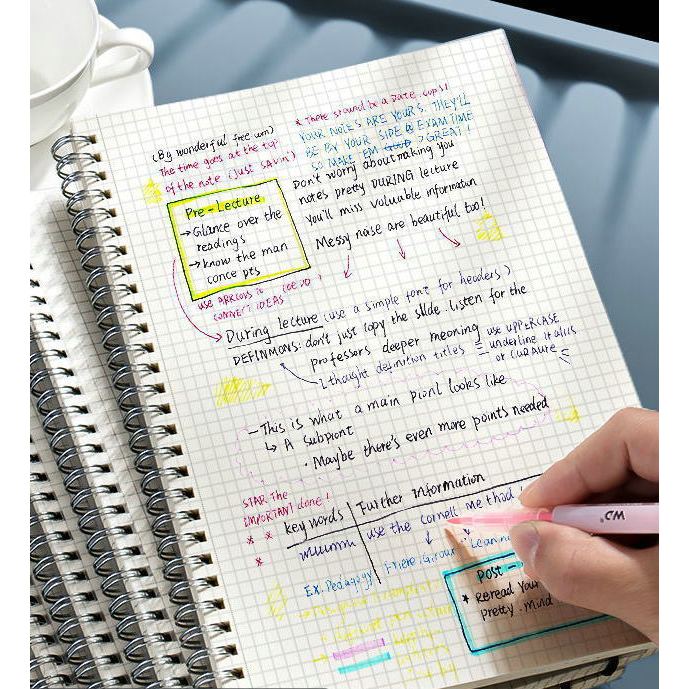 (By wonderful free wn)
The time goes at the top
of the note (just SAVIN')
* There sround be a Date, cups!
YOUR NOTES ARE YOURS. THEY'LL
BE BY YOUR SIDE @ EXAM TIME
SO MAKE EM GOOD > GREAT!
Don't worry about making you
notes pretty DURING lecture
You'll miss valuable information
Messy nose are beautiful too!
Pre-Lecture
→ Glance over the
readings
→ know the man
conce pts
USE ARROWS to
CONNECT IDEAS
During lecture (use a simple font for headers)
DEFINMONS: don't just copy the slide. listen for the
professors deeper meaning
use UPPERCASE
underline italics
or
thought definition titles
- This is what a main pionl looks like
↳ A Subpiont
· Maybe there's even more points needed
STAR The
IMPORTANT done!
* *
*
key words
Further Information
use the cornell method!
EX. Pedagogy
Post -
* Reread Your
pretty. Mind